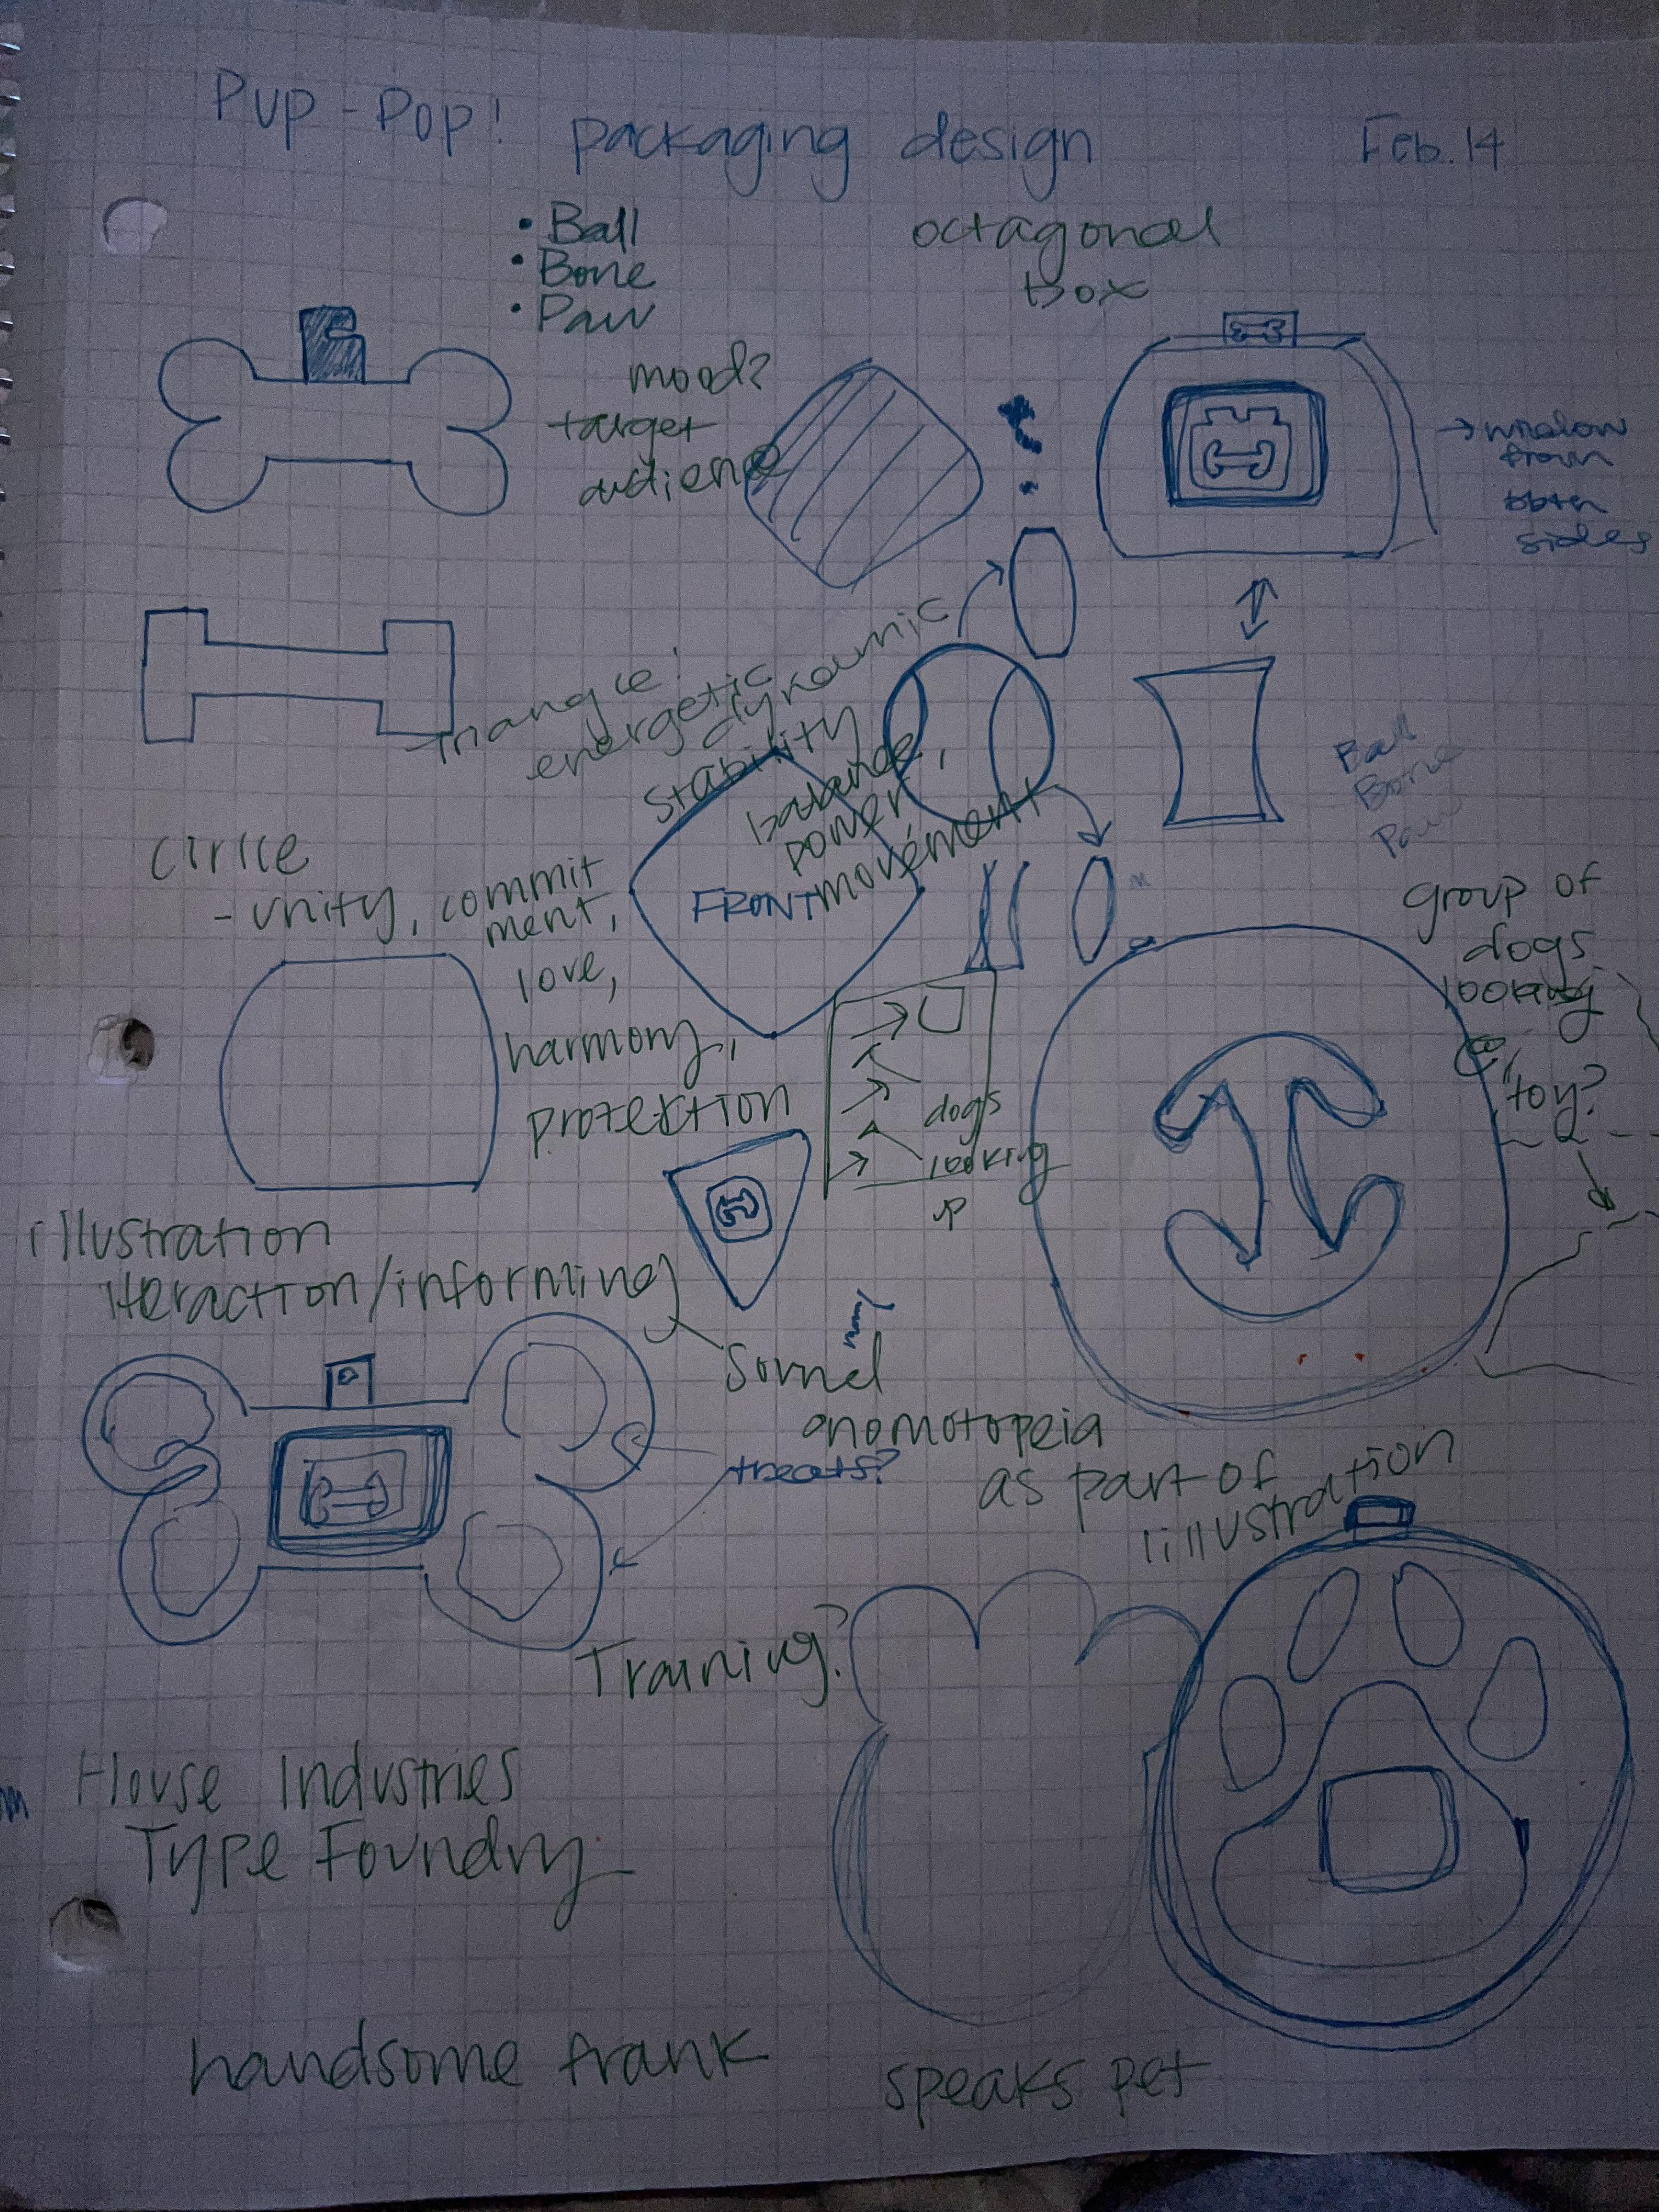 Pup-Pop! packaging design Feb. 14
• Ball
• Bone
• Paw
octagonal
box
mood?
target
audience
→ window
from
both
sides
triangle!
energetic
dynamic
stability
balance,
power,
movement
FRONT
Ball
Bone
Paw
cirlce
- unity, commit
ment,
love,
harmony,
protektion
group of
dogs
looking
@
toy?
dogs
looking
up
illustration
iteraction/informing
Sound
onomotopeia
as part of
illustration
treats?
Training?
House Industries
Type Foundry
handsome frank
speaks pet